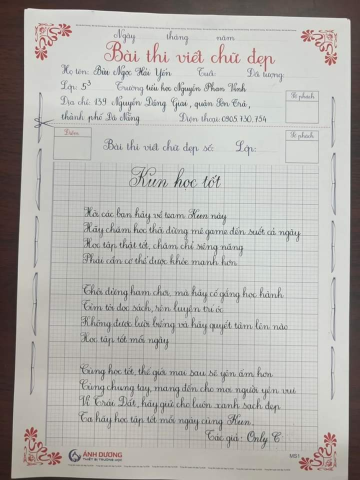 Ngày tháng năm
Bài thi viết chữ đẹp
Họ tên: Bùi Ngọc Hải Yến Tuổi: Dự tượng:
Lớp: 5³ Trường tiểu học Nguyễn Phan Vinh
Địa chỉ: 159 Nguyễn Đăng Giai, quận Sơn Trà,
thành phố Đà Nẵng Điện thoại: 0905 730 754
Số phách
Điểm
Bài thi viết chữ đẹp số: Lớp:
Số phách
Kun học tốt
Hỡi các bạn hãy về team Kun này
Hãy chăm học thôi đừng mê game đến suốt cả ngày
Học tập thật tốt, chăm chỉ siêng năng
Phải cần cơ thể được khỏe mạnh hơn
Thôi đừng ham chơi, mà hãy cố gắng học hành
Tìm tòi đọc sách, rèn luyện trí óc
Không được lười biếng và hãy quyết tâm lên nào
Học tập tốt mỗi ngày
Cùng học tốt, thế giới mai sau sẽ yên ấm hơn
Cùng chung tay, mang đến cho mọi người yên vui
Vì Trái Đất, hãy giữ cho luôn xanh sạch đẹp
Ta hãy học tập tốt mỗi ngày cùng Kun
Tác giả: Only C
ÁNH DƯƠNG
THIẾT BỊ TRƯỜNG HỌC
MS1